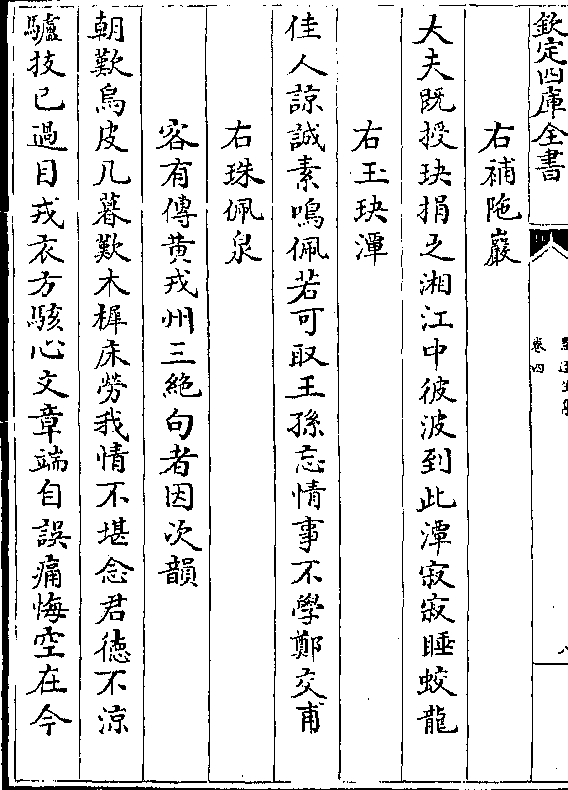 欽定四庫全書
卷四
右補陁巖
大夫既授玦捐之湘江中彼波到此潭寂寂睡蛟龍
右玉玦潭
佳人諒誠素鳴佩若可取王孫忘情事不學鄭交甫
右珠佩泉
客有傳黄戎州三絶句者因次韻
朝歎烏皮几暮歎木樨床勞我情不堪念君徳不涼
驢技已過目戎衣方駭心文章端自誤痛悔空在今